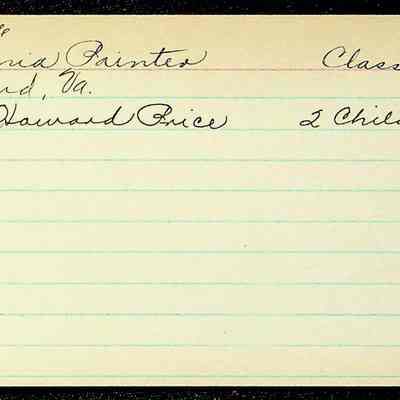 Painter Class
Va.
Howard Price 2 Chil